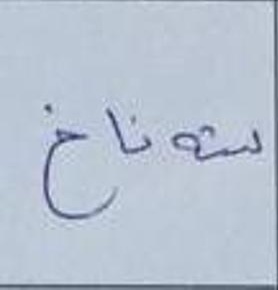 سته ناخ